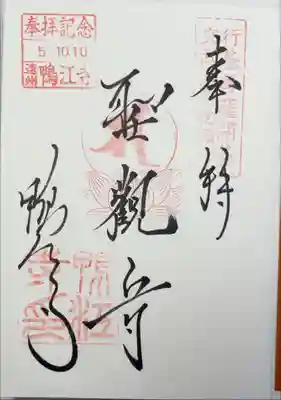 奉拝
聖觀音
鴨江寺
奉拝記念
5.10.10
遠州 鴨江寺